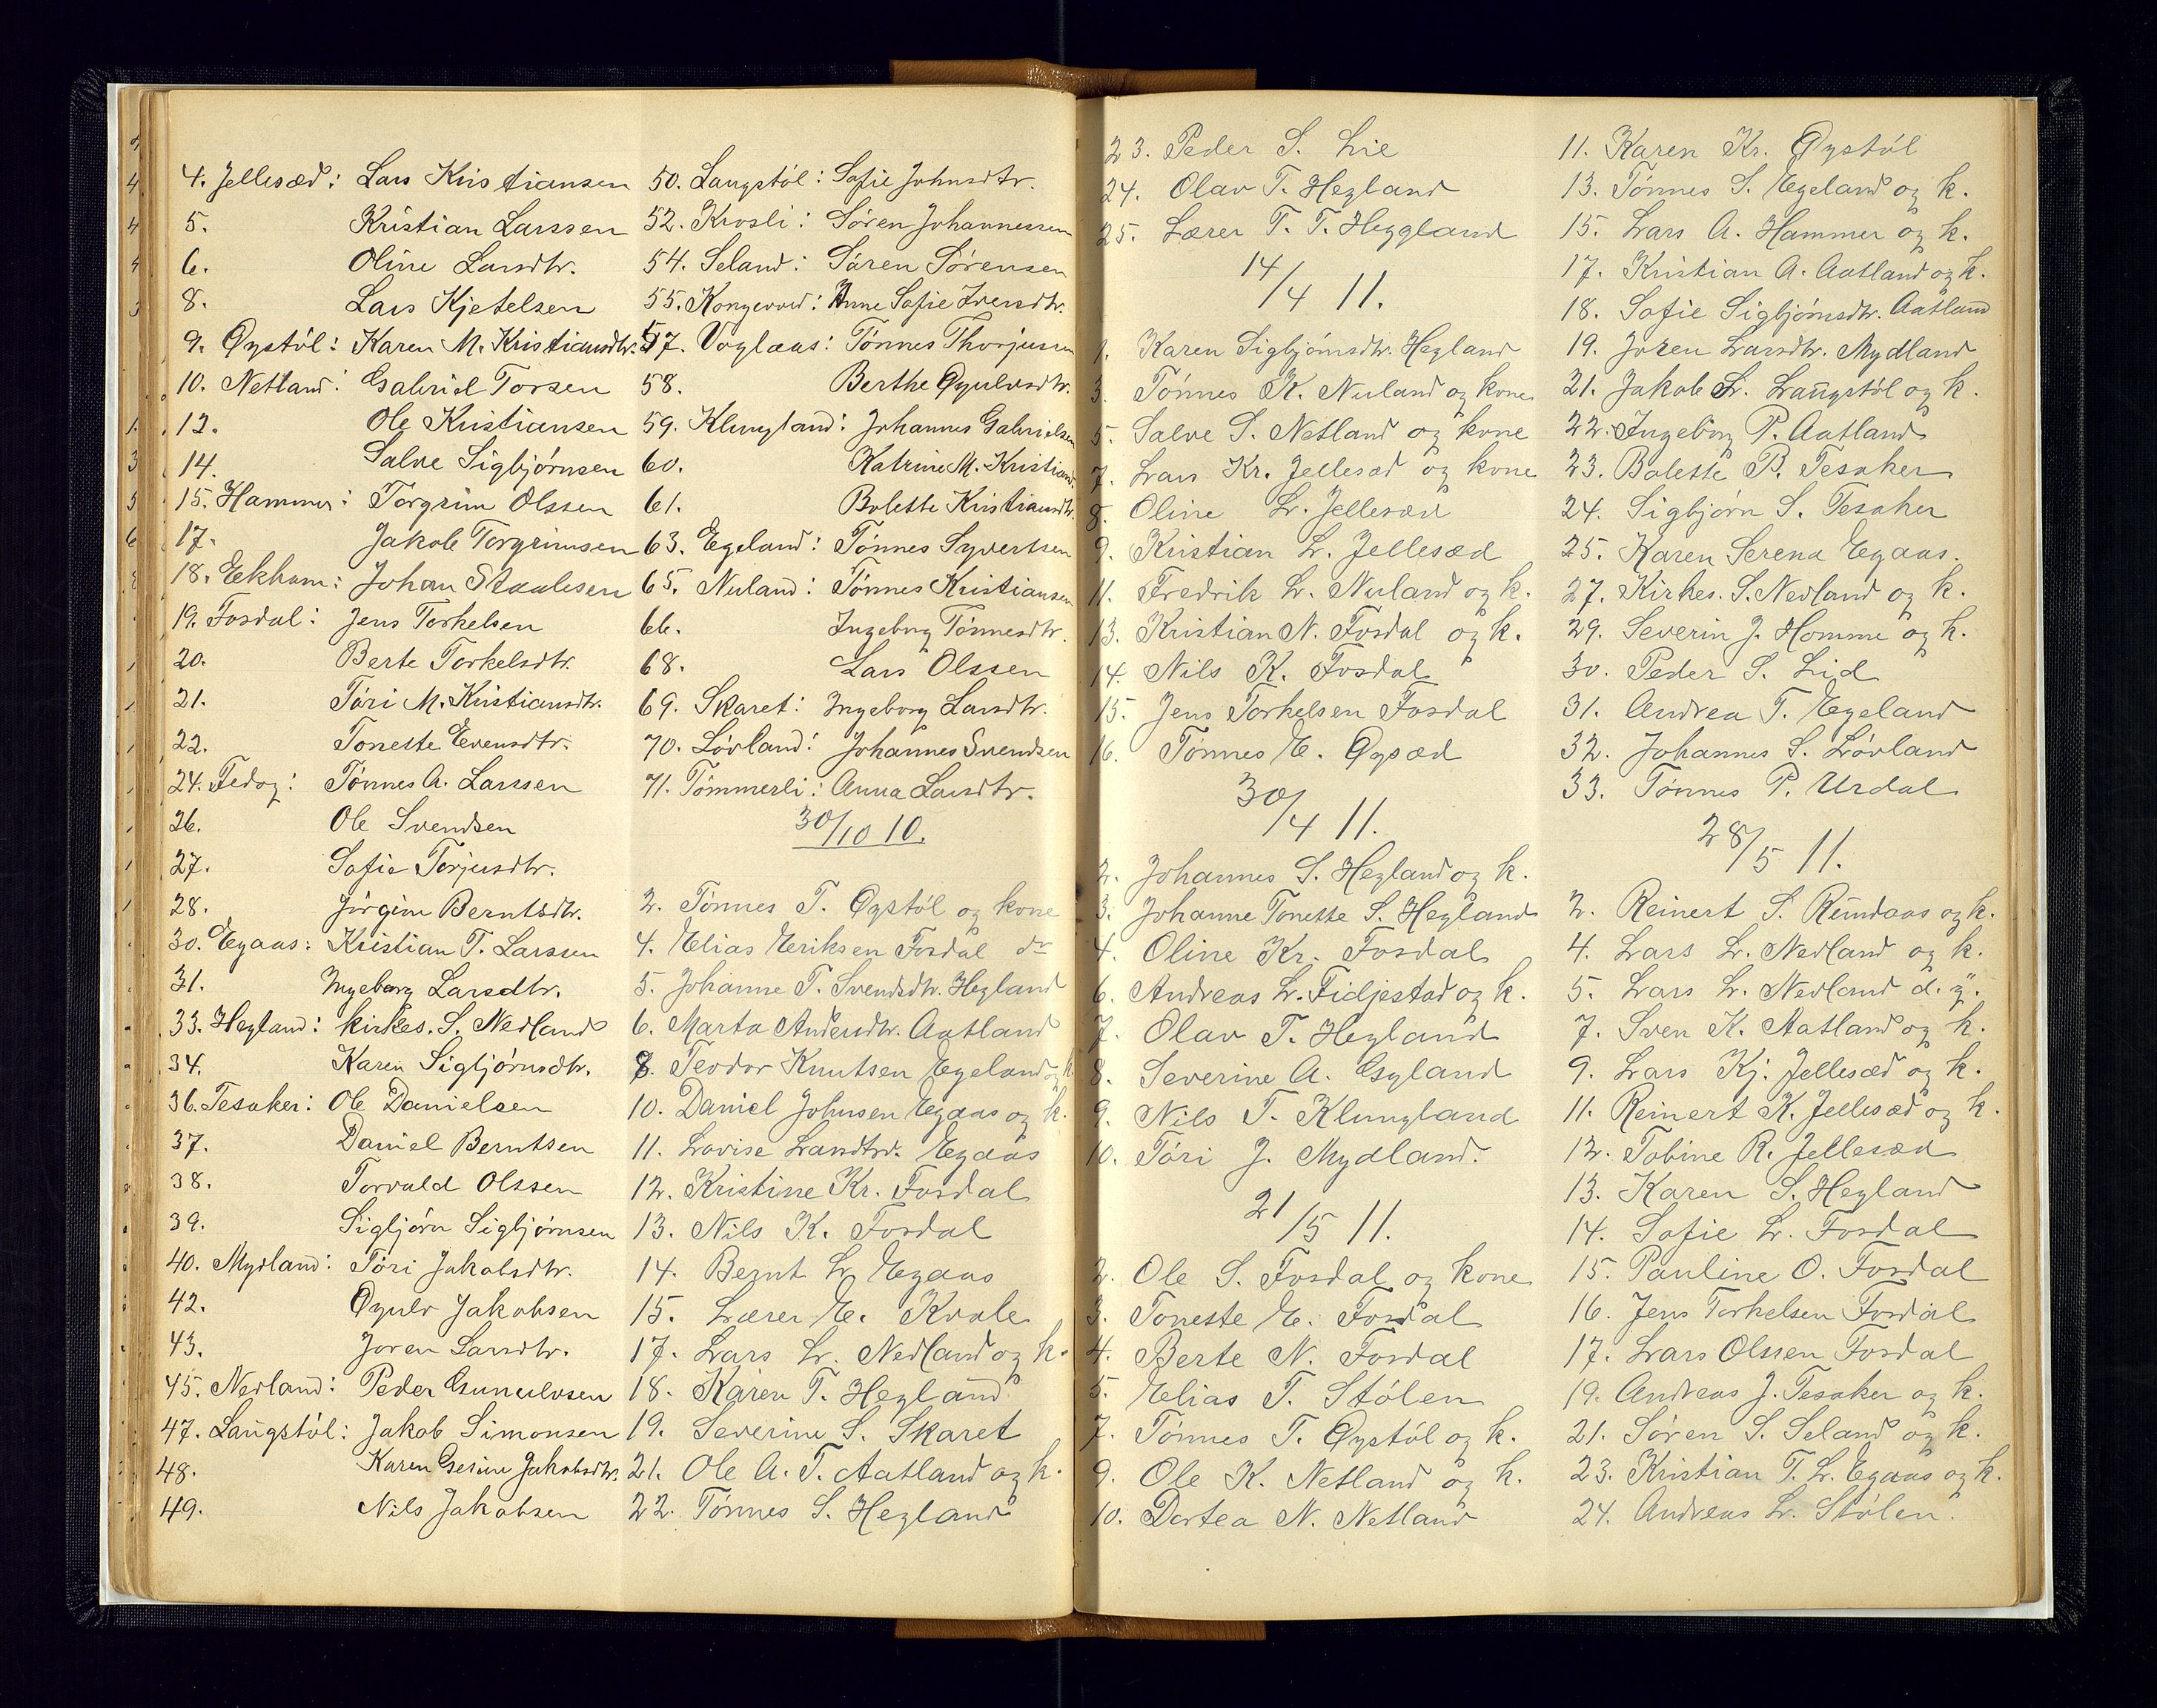 4. Jellesæd: Lars Kristiansen
5. Kristian Larssen
6. Oline Larsdtr.
8. Lars Kjetelsen
9. Øystöl: Karen M. Kristiansdtr.
10. Netland: Gabriel Torsen
12. Ole Kristiansen
14. Salve Sigbjørnsen
15. Hammer: Torgrim Olssen
17. Jakob Torgrimsen
18. Eekhum: Johan Staalesen
19. Fosdal: Jens Torkelsen
20. Berte Torkelsdtr.
21. Töri M. Kristiansdtr.
22. Tonette Evensdtr.
24. Fedog: Tönnes A. Larssen
26. Ole Svendsen
27. Sofie Torjusdtr.
28. Jörgine Berntsdtr.
30. Egaas: Kristian T. Larssen
31. Ingeborg Larsdtr.
33. Hegland: kirkes. S. Nedland
34. Karen Sigbjörnsdtr.
36. Tesaker: Ole Danielsen
37. Daniel Berntsen
38. Torvald Olssen
39. Sigbjörn Sigbjörnsen
40. Mydland: Töri Jakobsdtr.
42. Øyulv Jakobsen
43. Joren Larsdtr.
45. Nedland: Peder Gunulvsen
47. Laugstöl: Jakob Simonsen
48. Karen Gesine Jakobsdtr.
49. Nils Jakobsen
50. Laugstöl: Sofie Johnsdtr.
52. Krosli: Sören Johannessen
54. Seland: Sören Sörensen
55. Kongevod: Anne Sofie Iversdtr.
57. Voglaas: Tönnes Thorjussen
58. Berthe Øyulvsdtr.
59. Klungland: Johannes Gabrielsen
60. Katrine M. Kristiansd.
61. Bolette Kristiansdtr.
63. Egeland: Tönnes Syvertsen
65. Nuland: Tönnes Kristiansen
66. Ingeborg Tönnesdtr.
68. Lars Olssen
69. Skaret: Ingeborg Larsdtr.
70. Lövland: Johannes Svendsen
71. Tömmerli: Anna Larsdtr.
30/10 10.
2. Tönnes T. Øystöl og kone
4. Elias Eriksen Fosdal do
5. Johanne T. Svendsdtr. Hegland
6. Marta Andersdtr. Aatland
8. Teodor Knutsen Egeland og k.
10. Daniel Johnsen Egaas og k.
11. Lovise Larsdtr. Egaas
12. Kristine Kr. Fosdal
13. Nils K. Fosdal
14. Bernt L. Egaas
15. Lærer E. Kvale
17. Lars L. Nedland og k.
18. Karen T. Hegland
19. Severine S. Skaret
21. Ole A. T. Aatland og k.
22. Tönnes S. Hegland
23. Peder S. Lie
24. Olav T. Hegland
25. Lærer T. T. Heggland
14/4 11.
1. Karen Sigbjörnsdtr. Hegland
3. Tönnes K. Nuland og kone
5. Salve S. Netland og kone
7. Lars Kr. Jellesæd og kone
8. Oline L. Jellesæd
9. Kristian L. Jellesæd
11. Fredrik L. Nuland og k.
13. Kristian N. Fosdal og k.
14. Nils K. Fosdal
15. Jens Torkelsen Fosdal
16. Tönnes E. Øysæd
30/4 11.
2. Johannes S. Hegland og k.
3. Johanne Tonette S. Hegland
4. Oline Kr. Fosdal
6. Andreas L. Fidjestad og k.
7. Olav T. Hegland
8. Severine A. Gyland
9. Nils T. Klungland
10. Töri J. Mydland.
21/5 11.
2. Ole S. Fosdal og kone
3. Tonette E. Fosdal
4. Berte N. Fosdal
5. Elias T. Stölen
7. Tönnes T. Øystöl og k.
9. Ole K. Netland og k.
10. Dortea N. Netland
11. Karen Kr. Øystöl
13. Tönnes S. Egeland og k.
15. Lars A. Hammer og k.
17. Kristian A. Aatland og k.
18. Sofie Sigbjörnsdtr. Aatland
19. Joren Larsdtr. Mydland
21. Jakob S. Laugstöl og k.
22. Ingeborg P. Aatland
23. Bolette B. Tesaker
24. Sigbjörn S. Tesaker
25. Karen Serena Egaas.
27. Kirkes. S. Nedland og k.
29. Severin J. Homme og k.
30. Peder S. Lid
31. Andrea T. Egeland
32. Johannes S. Lövland
33. Tönnes P. Urdal
28/5 11.
2. Reinert S. Rundaas og k.
4. Lars L. Nedland og k.
5. Lars L. Nedland d. y.
7. Sven K. Aatland og k.
9. Lars Kj. Jellesæd og k.
11. Reinert K. Jellesæd og k.
12. Tobine R. Jellesæd
13. Karen S. Hegland
14. Sofie L. Fosdal
15. Pauline O. Fosdal
16. Jens Torkelsen Fosdal
17. Lars Olssen Fosdal
19. Andreas J. Tesaker og k.
21. Sören S. Seland og k.
23. Kristian T. L. Egaas og k.
24. Andreas L. Stölen.